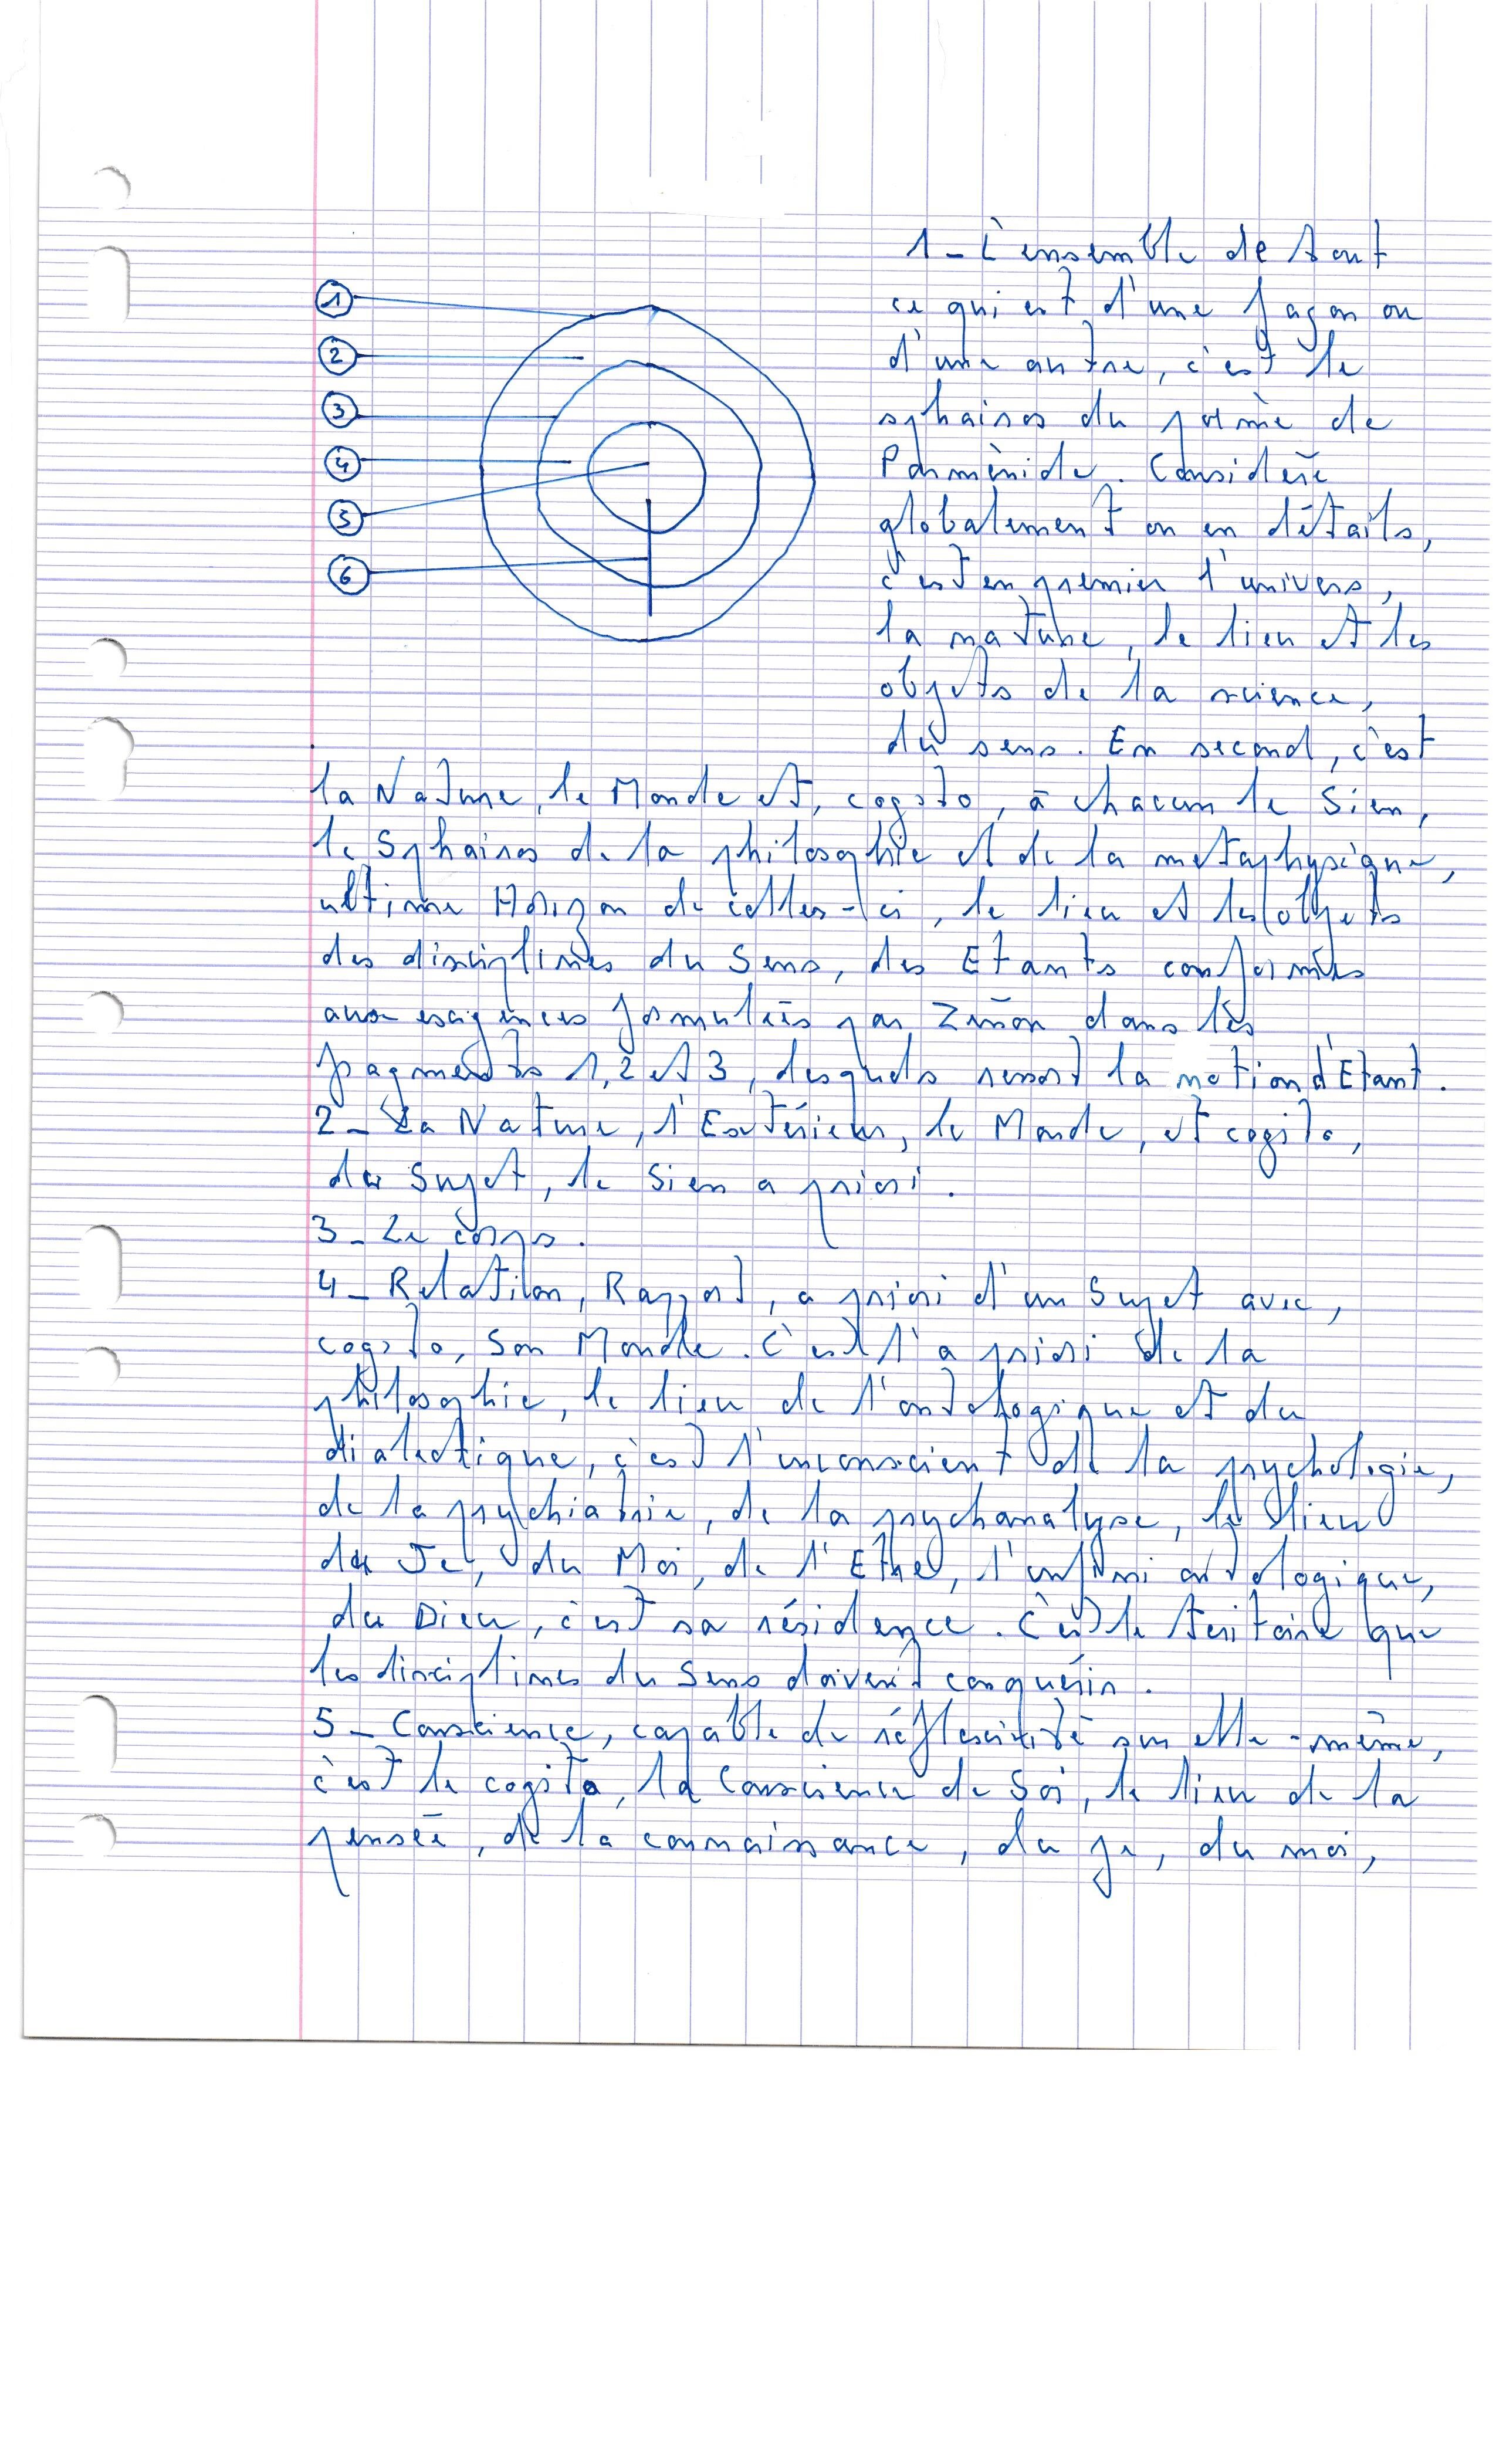 1
2
3
4
5
6
1 - L'ensemble de tout
ce qui est d'une façon ou
d'une autre, c'est le
sphairos du poème de
Parménide. Considéré
globalement ou en détails,
c'est en premier l'univers,
la nature, le lieu et les
objets de la science,
du sens. En second, c'est
la Nature, le Monde et, cogito, à chacun le Sien,
le Sphairos de la philosophie et de la métaphysique,
ultime Horizon de celles-ci, le lieu et les objets
des disciplines du Sens, des Etants conformés
aux exigences formulées par Zénon dans les
fragments 1, 2 et 3, desquels ressort la notion d'Etant.
2 - La Nature, l'Extérieur, le Monde, et cogito,
du Sujet, le Sien a priori.
3 - Le corps.
4 - Relation, Rapport, a priori d'un Sujet avec,
cogito, Son Monde. C'est l'a priori de la
philosophie, le lieu de l'ontologique et du
dialectique, c'est l'inconscient de la psychologie,
de la psychiatrie, de la psychanalyse, le lieu
du Je, du Moi, de l'Ethe, l'infini ontologique,
du Dieu, c'est sa résidence. C'est le territoire que
les disciplines du Sens doivent conquérir.
5 - Conscience, capable de réflexivité sur elle-même,
c'est le cogito, la Conscience de Soi, le lieu de la
pensée, de la connaissance, du je, du moi,